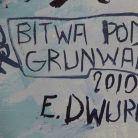 BITWA POD
GRUNWA
2010
E. DWUR